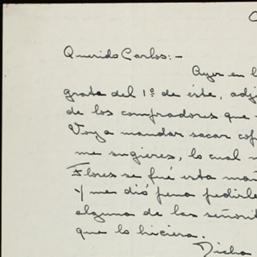 Querido Carlos:-
Ayer en l
grata del 1º de éste, adj
de los compradores que
Voy a mandar sacar cop
me sugieres, lo cual n
Flores se fué esta mañ
y me dió pena pedirle
alguna de las señorit
que lo hiciera.
Dicha